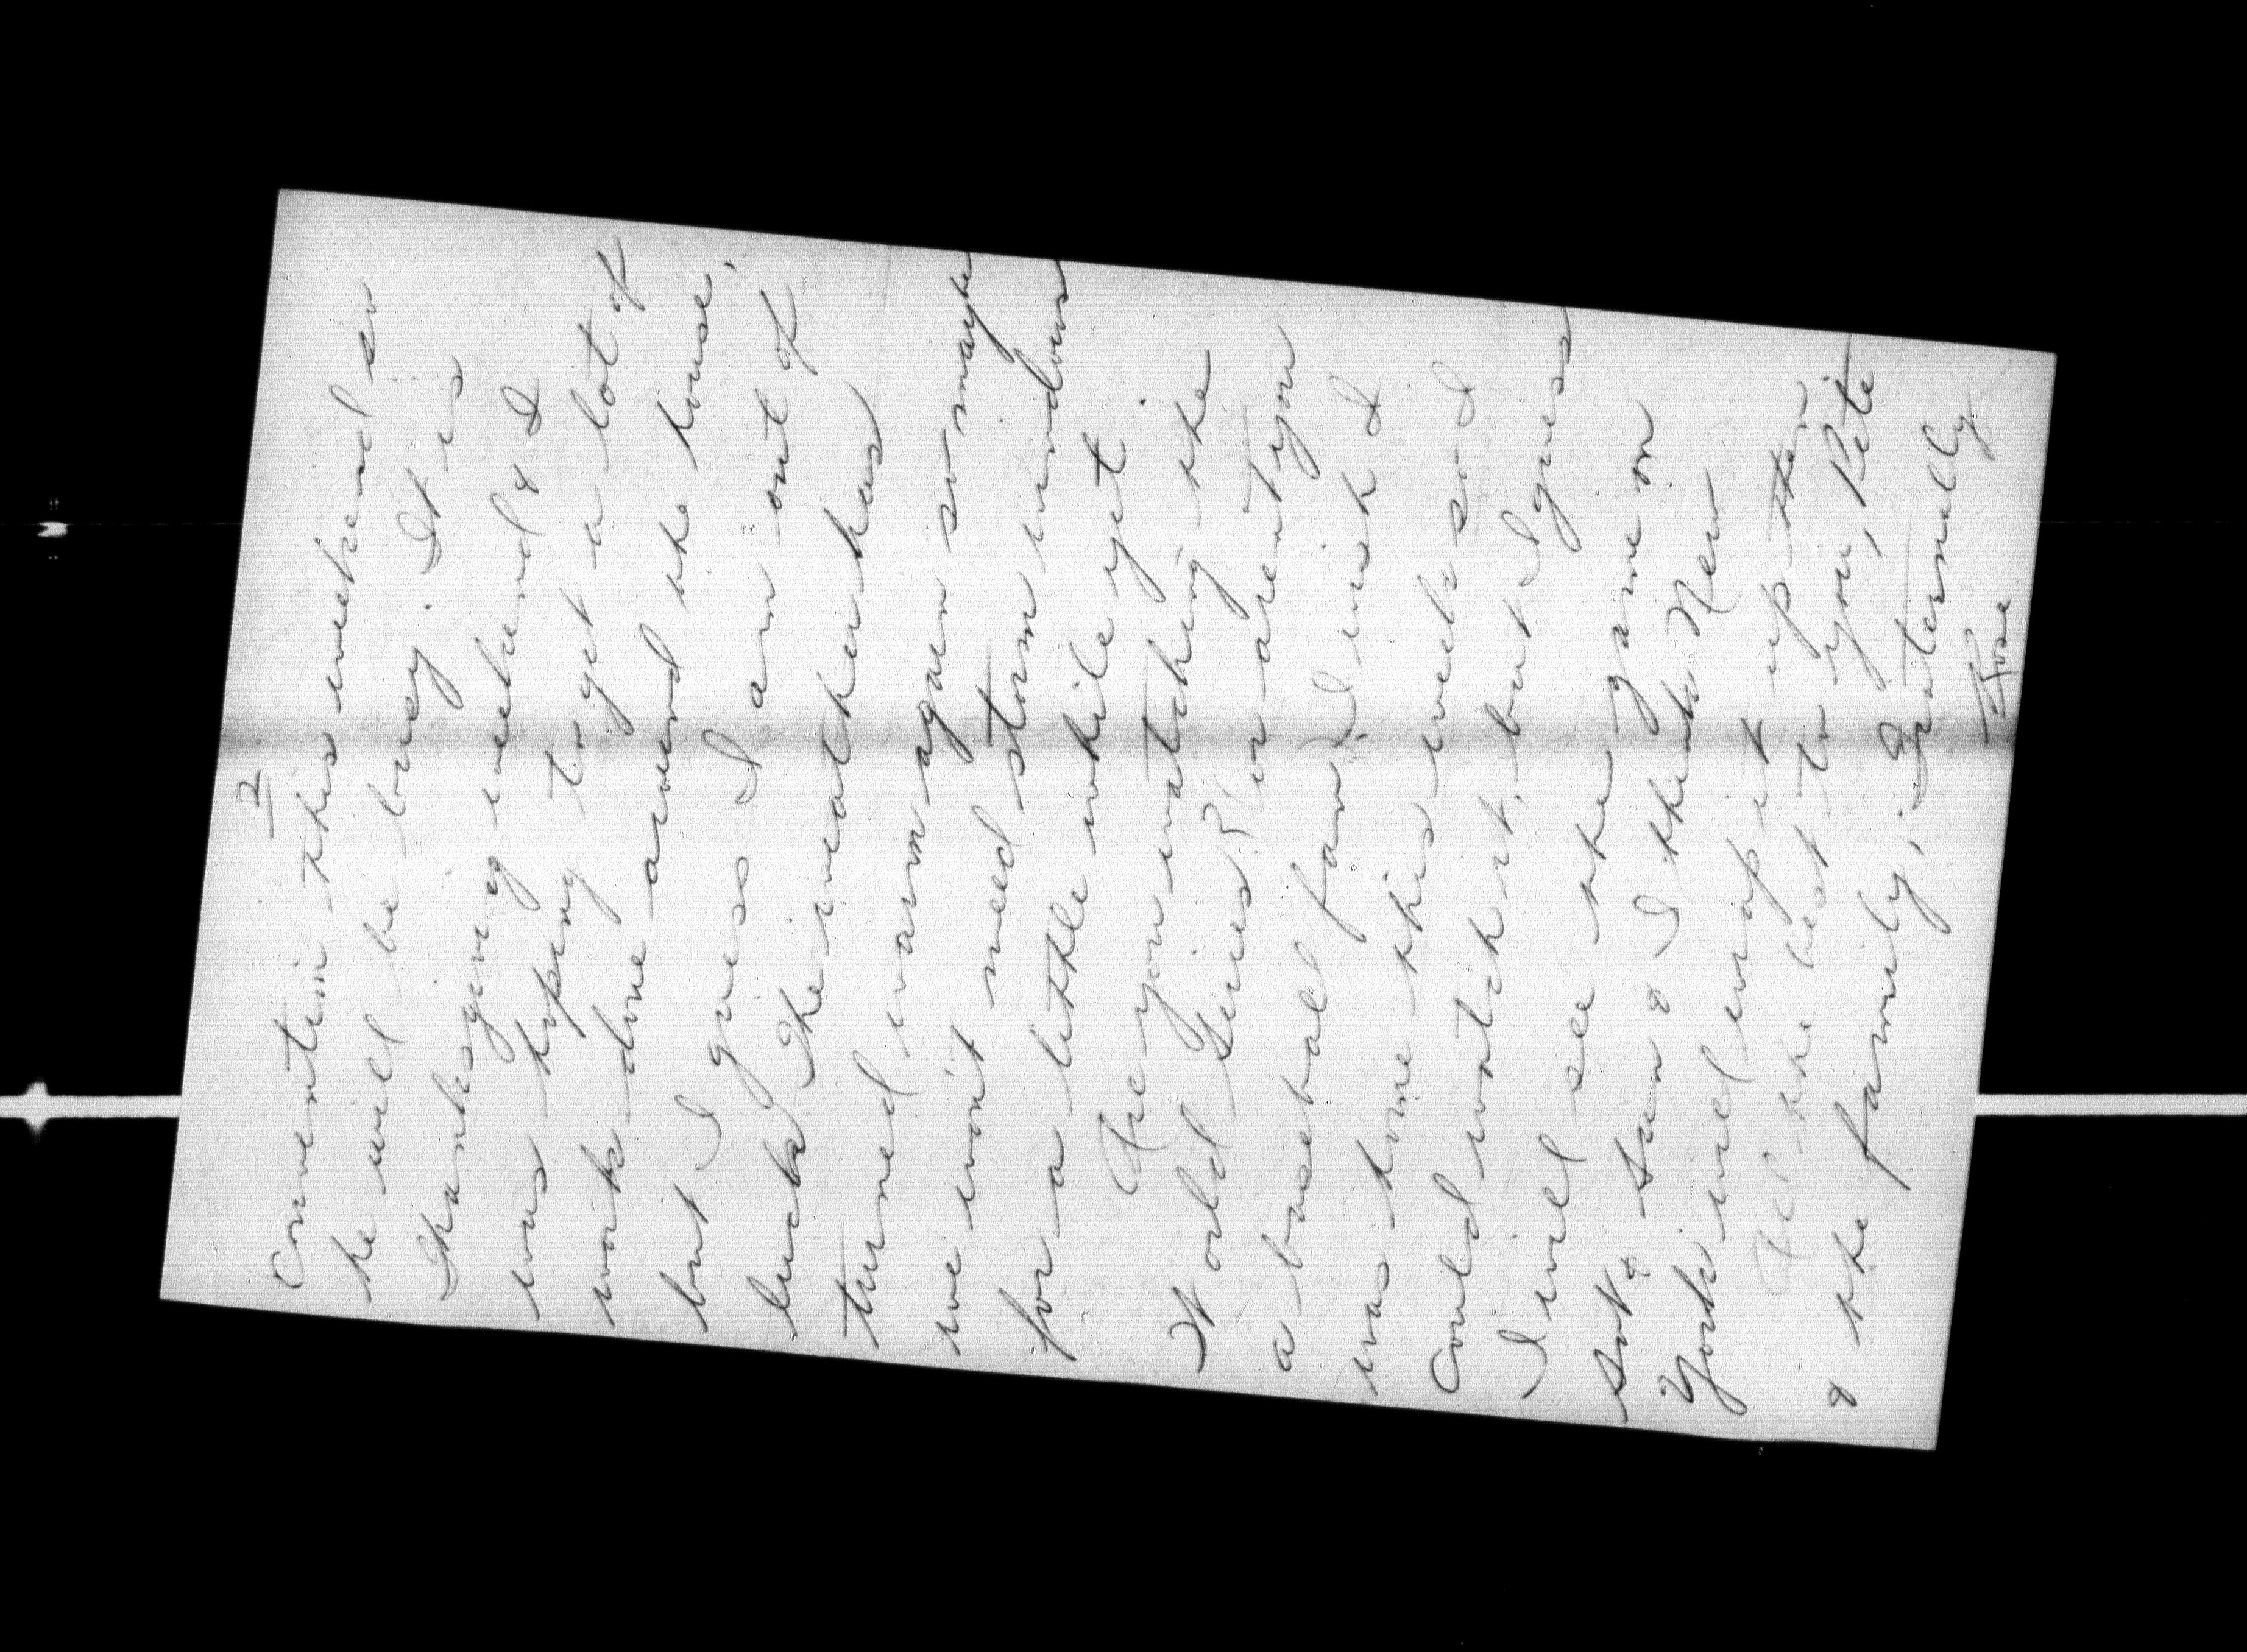 2
Convention this weekend so
he will be busy. It is
Thanksgiving weekend & I
was hoping to get a lot of
work done around the house,
but I guess I am out of
luck. The weather has
turned warm again so maybe
we won't need storm windows
for a little while yet.
Are you watching the
World Series? or aren't you
a baseball fan? I wish I
was home this week so I
could watch it, but I guess
I will see the game on
Sat & Sun & I think New
York will wrap it up then
All the best to you, Pete
& the family, Fraternally
Rose